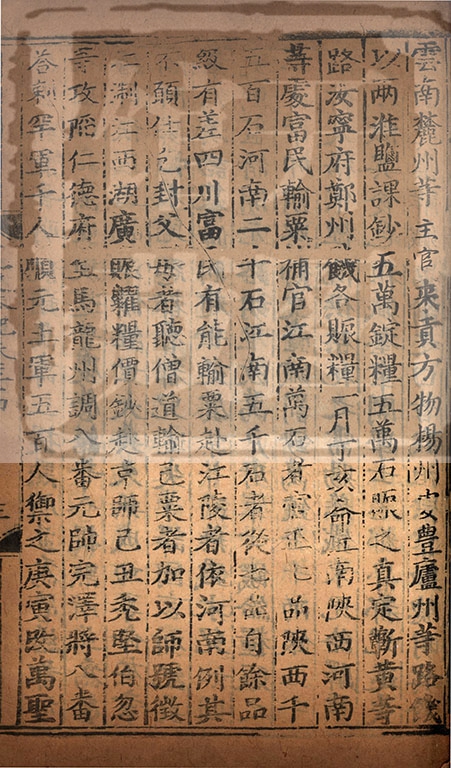 雲南麓州等土官来貢方物楊州安豊廬州等路饑
以兩淮鹽課鈔五萬錠糧五萬石賑之真定蘄黃等
路汝寧府鄭州饑各賑糧一月丁亥命江南陝西河南
等處富民輸粟補官江南萬石者官正七品陝西千
五百石河南二千石江南五千石者從七品自餘品
級有差四川富民有能輸粟赴江陵者依河南例其
不願仕乞封父母者聽僧道輸己粟者加以師號徵
江制江西湖廣賑糶糧價鈔赴京師己丑禿堅伯忽
等攻陷仁德府至馬龍州調八番元帥完澤將八番
荅剌罕軍千人順元土軍五百人禦之庚寅改萬聖